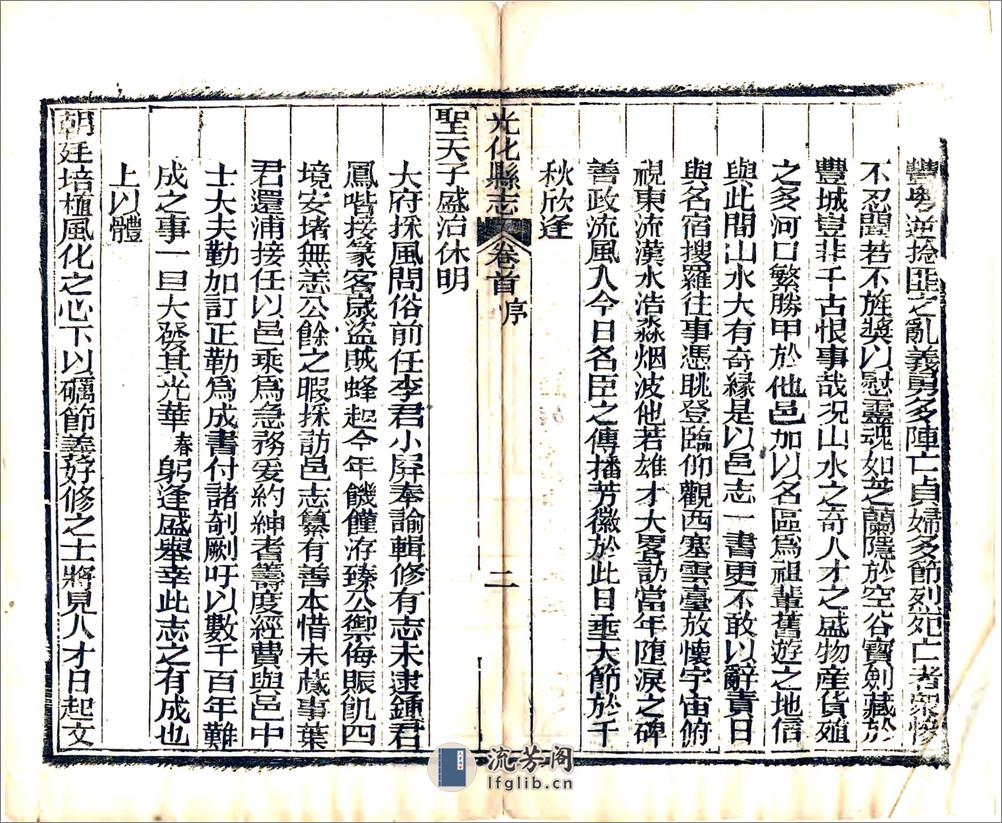 豐粵逆捻匪之亂義勇多陣亡貞婦多節烈死亡者眾慘
不忍聞若不旌獎以慰靈魂如芝蘭隱於空谷寶劍藏於
豐城豈非千古恨事哉況山水之奇人才之盛物產貨殖
之多河口繁勝甲於他邑加以名區為祖輩舊遊之地信
與此間山水大有奇緣是以邑志一書更不敢以辭責日
與名宿搜羅往事憑眺登臨仰觀西塞雲臺放懷宇宙俯
視東流漢水浩淼烟波他若雄才大畧訪當年墮淚之碑
善政流風入今日名臣之傳播芳徽於此日垂大節於千
秋欣逢
光化縣志 卷首 序 二
聖天子盛治休明
大府採風問俗前任李君小屏奉諭輯修有志未逮鍾君
鳳喈接篆客歲盜賊蜂起今年饑饉洊臻公禦侮賑飢四
境安堵無恙公餘之暇採訪邑志纂有善本惜未蕆事葉
君還浦接任以邑乘為急務爰約紳耆籌度經費與邑中
士大夫勤加訂正勒為成書付諸剞劂吁以數千百年難
成之事一旦大發其光華春躬逢盛舉幸此志之有成也
上以體
朝廷培植風化之心下以礪節義好修之士將見人才日起文
流芳阁
lfglib.cn